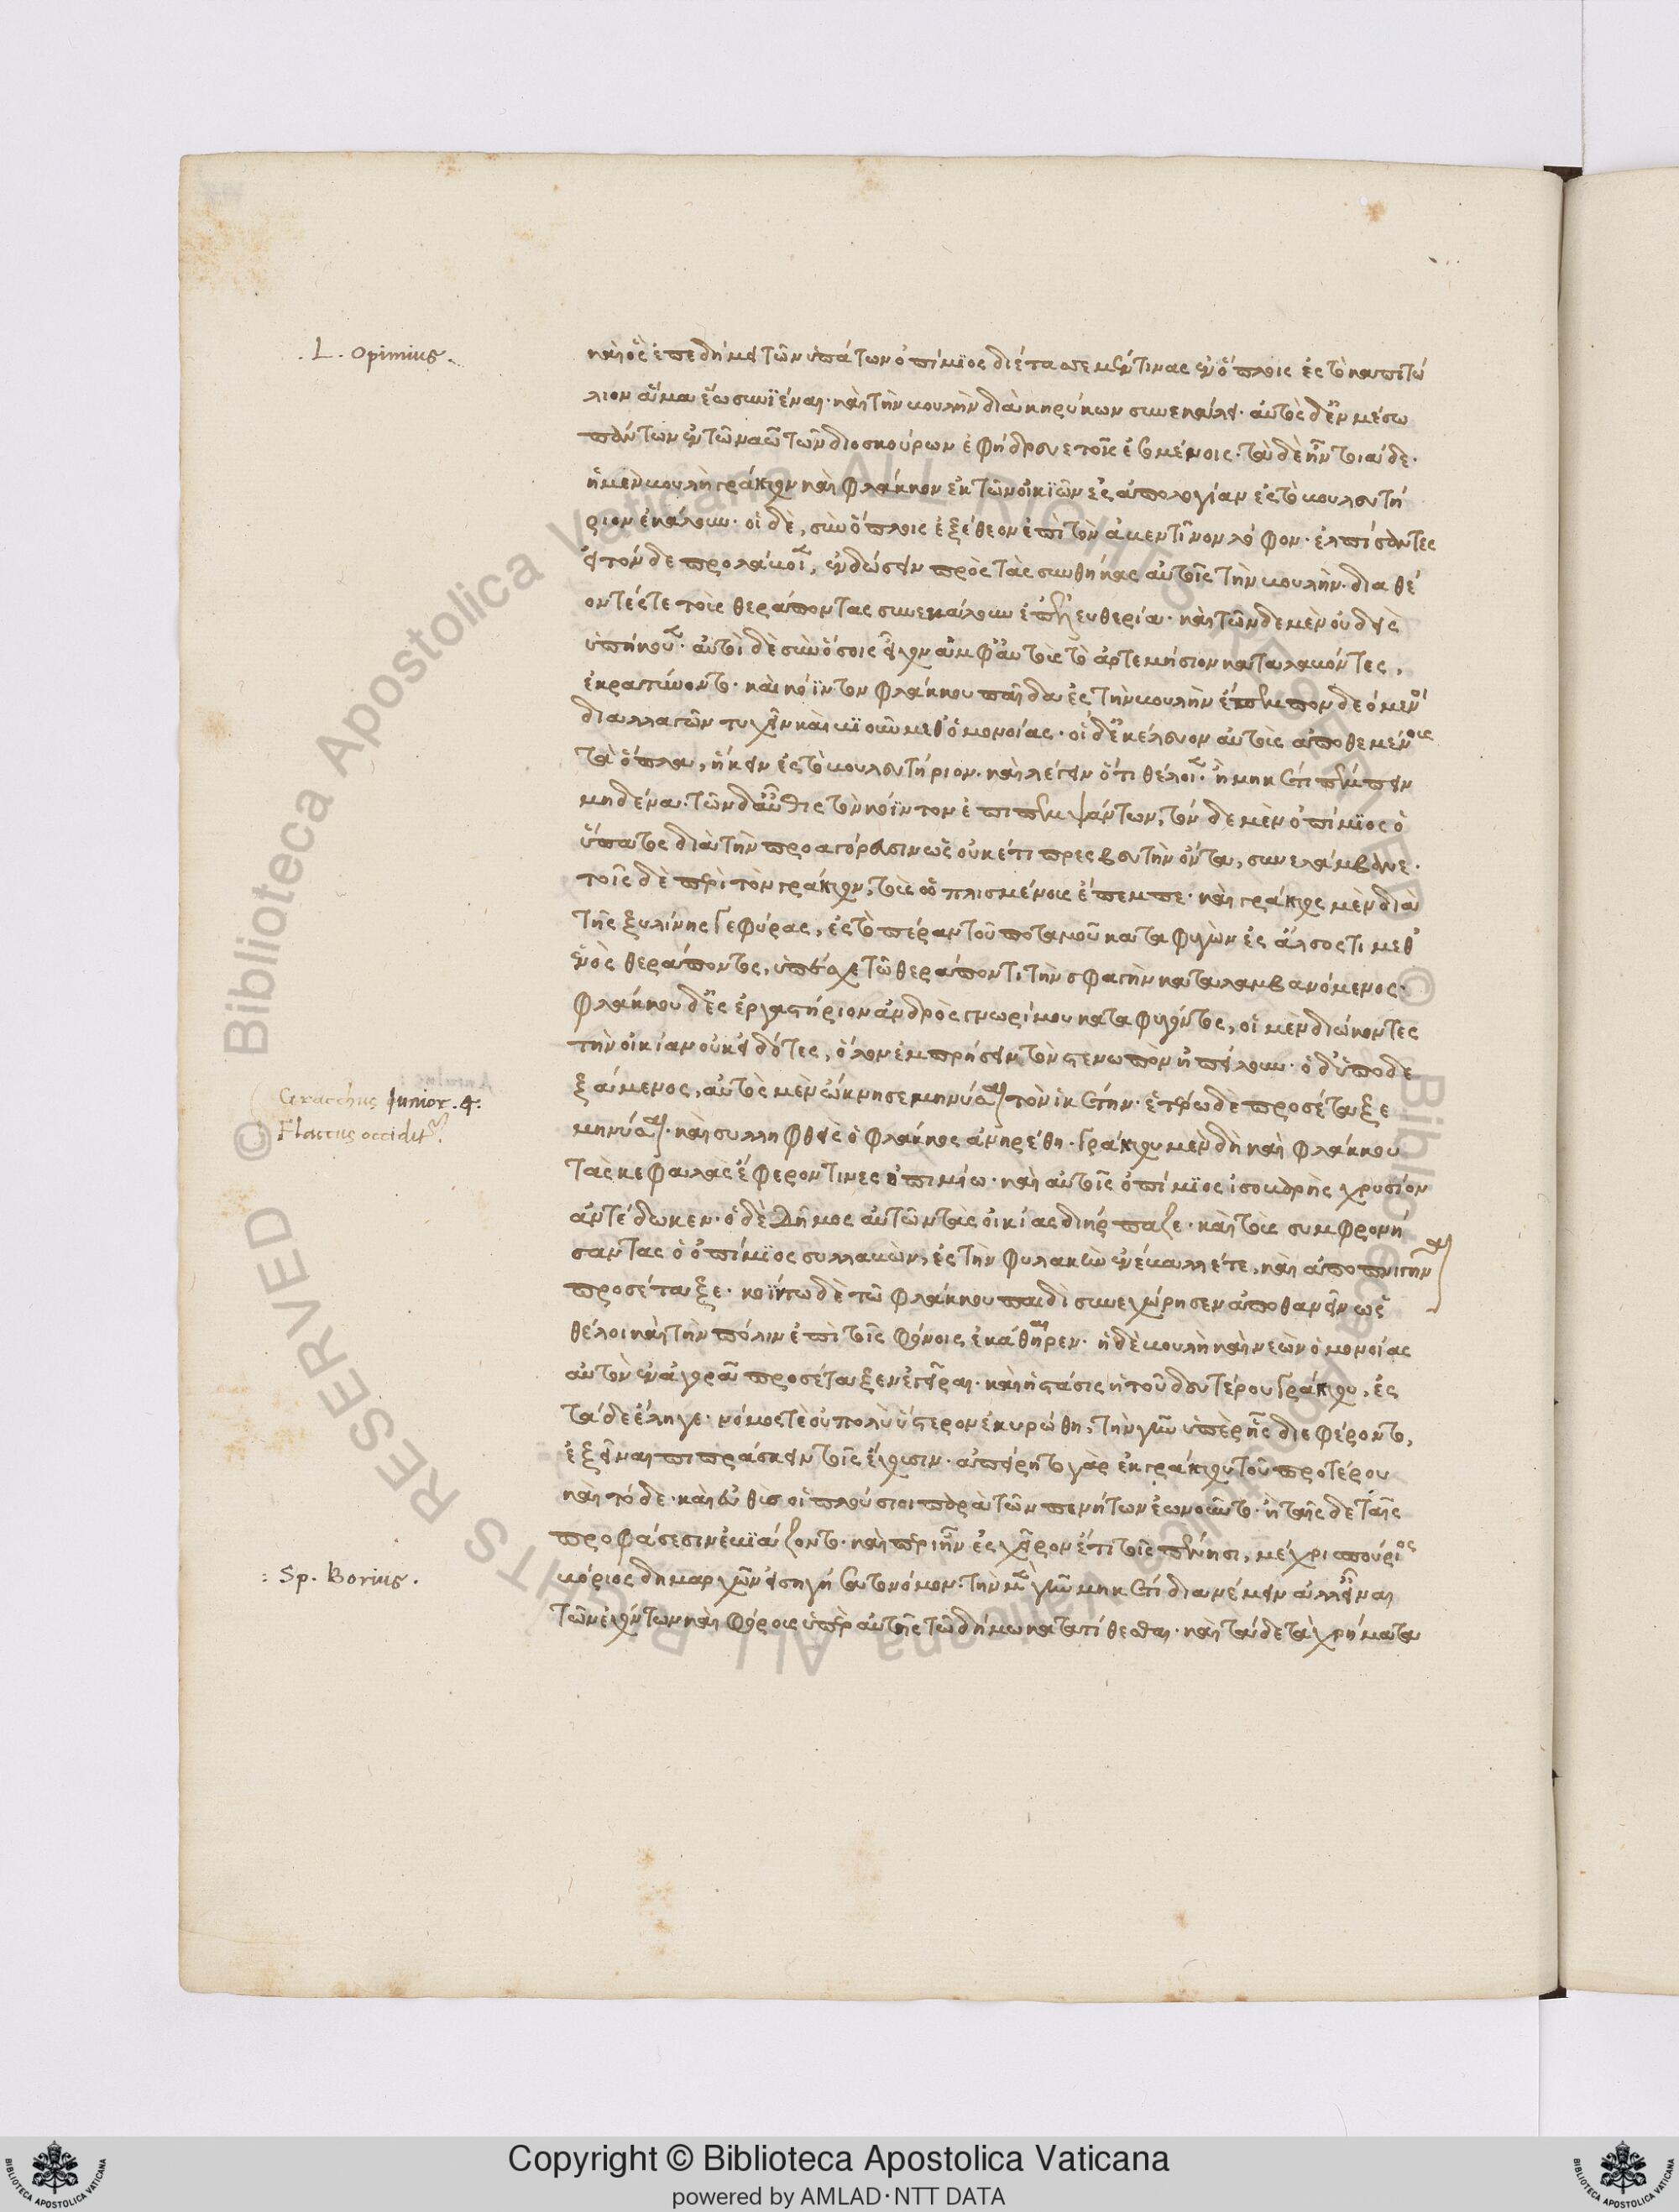 . L. Opimius.
καὶ ὃς ἐπεδήμει τῶν ὑπάτων ὀπίμϊος διέταξε μέν τινας ἐνόπλοις ἐς τὸ καπιτώ
λιον ἅμα ἕω συνϊέναι· καὶ τὴν βουλὴν διὰ κηρύκων συνεκάλει· αὐτὸς δ' ἐν μέσω
πάντων ἐν τῶ ναῶ τῶν διοσκούρων ἐφήδρευε τοῖς ἐσομένοις· τὰ δὲ ἦν τοιάδε·
ἡ μὲν βουλὴ γράκχον καὶ φλάκκον ἐκ τῶν οἰκϊῶν ἐς ἀπολογίαν ἐς τὸ βουλευτή
ριον ἐκάλουν· οἱ δὲ, σὺν ὅπλοις ἐξέθεον ἐπὶ τὸν ἀβεντῖνον λόφον· ἐλπίσαντες
εἰ τόνδε προλάβοιεν, ἐνδώσειν πρὸς τὰς συνθήκας αὐτοῖς τὴν βουλήν· διαθέ
οντές τε τοὺς θεράποντας συνεκάλουν ἐπ' ἐλευθερία· καὶ τῶνδε μὲν οὐδεὶς
ὑπήκουεν· αὐτοὶ δὲ σὺν ὅσοις εἶχον ἀμφ' αὐτοὺς τὸ ἀρτεμήσιον καταλαβόντες,
ἐκρατύνοντο· καὶ κόϊντον φλάκκου παῖδα ἐς τὴν βουλὴν ἔπεμπον δεόμενοι
διαλλαγῶν τυχεῖν καὶ βϊοῦν μεθ' ὁμονοίας· οἱ δ' ἐκέλευον αὐτοὺς ἀποθεμένους
τὰ ὅπλα, ἥκειν ἐς τὸ βουλευτήριον· καὶ λέγειν ὅτι θέλοιεν· ἢ μηκέτι πέμπειν
μηδένα· τῶν δ' αὖθις τὸν κόϊντον ἐπιπεμψάντων, τόνδε μὲν ὀπίμϊος ὁ
ὕπατος διὰ τὴν προαγόρευσιν ὡς οὐκέτι πρεσβευτὴν ὄντα, συνελάμβανε·
τοῖς δὲ περὶ τὸν γράκχον, τοὺς ὡπλισμένους ἔπεμπε· καὶ γράκχος μὲν διὰ
τῆς ξυλίνης γεφύρας, ἐς τὸ πέραν τοῦ ποταμοῦ καταφυγὼν ἐς ἄλσος τι μεθ'
ἑνὸς θεράποντος, ὑπέσχε τῶ θεράποντι τὴν σφαγὴν καταλαμβανόμενος·
φλάκκου δ' ἐς ἐργαστήριον ἀνδρὸς γνωρίμου καταφυγόντος, οἱ μὲν διώκοντες
τὴν οἰκίαν οὐκ εἰδότες, ὅλον ἐμπρήσειν τὸν στενωπὸν ἠπείλουν· ὁ δ' ὑποδε
ξάμενος, αὐτὸς μὲν ὤκνησε μηνύσαι τὸν ἱκέτην· ἑτέρω δὲ προσέταξε
Gracchus Junior. &
Flaccus occidit(ur)
μηνύσαι· καὶ συλληφθεὶς ὁ φλάκκος ἀνηρέθη· γράκχου μὲν δὴ καὶ φλάκκου
τὰς κεφαλὰς ἔφερόν τινες ὀπιμίω· καὶ αὐτοῖς ὀπίμϊος ἰσοβαρὲς χρυσίον
ἀντέδωκεν· ὁ δὲ δῆμος αὐτῶν τὰς οἰκίας διήρπαζε· καὶ τοὺς συμφρονή
σαντας ὁ ὀπίμϊος συλλαβὼν, ἐς τὴν φυλακὴν ἐνέβαλλέ τε, καὶ ἀποπνιγῆναι
προσέταξε· κοΐντω δὲ τῶ φλάκκου παιδὶ συνεχώρησεν ἀποθανεῖν ὡς
θέλοι καὶ τὴν πόλιν ἐπὶ τοῖς φόνοις ἐκάθηρεν· ἡ δὲ βουλὴ καὶ νεὼν ὁμονοίας
αὐτὸν ἐν ἀγορᾶ προσέταξεν ἐγεῖραι· καὶ ἡ στάσις ἡ τοῦ δευτέρου γράκχου, ἐς
τάδε ἔληγε· νόμος τὲ οὐ πολὺ ὕστερον ἐκυρώθη, τὴν γῆν ὑπὲρ ἧς διεφέροντο,
ἐξεῖναι πιπράσκειν τοῖς ἔχουσιν· ἀπείρητο γὰρ ἐκ γράκχου τοῦ προτέρου
καὶ τόδε· καὶ εὐθὺς οἱ πλούσιοι παρὰ τῶν πενήτων ἐωνοῦντο· ἢ ταῖσδε ταῖς
προφάσεσιν ἐβϊάζοντο· καὶ περιῆν ἐς χεῖρον ἔτι τοῖς πένησι, μέχρι σπούριος
: Sp. Borius.
βόριος δημαρχῶν εἰσηγήσατο νόμον· τὴν μὲν γῆν μηκέτι διανέμειν ἀλλ' εἶναι
τῶν ἐχόντων καὶ φόρους ὑπὲρ αὐτῆς τῶ δήμω κατατίθεσθαι· καὶ τάδε τὰ χρήματα
Copyright © Biblioteca Apostolica Vaticana
powered by AMLAD·NTT DATA